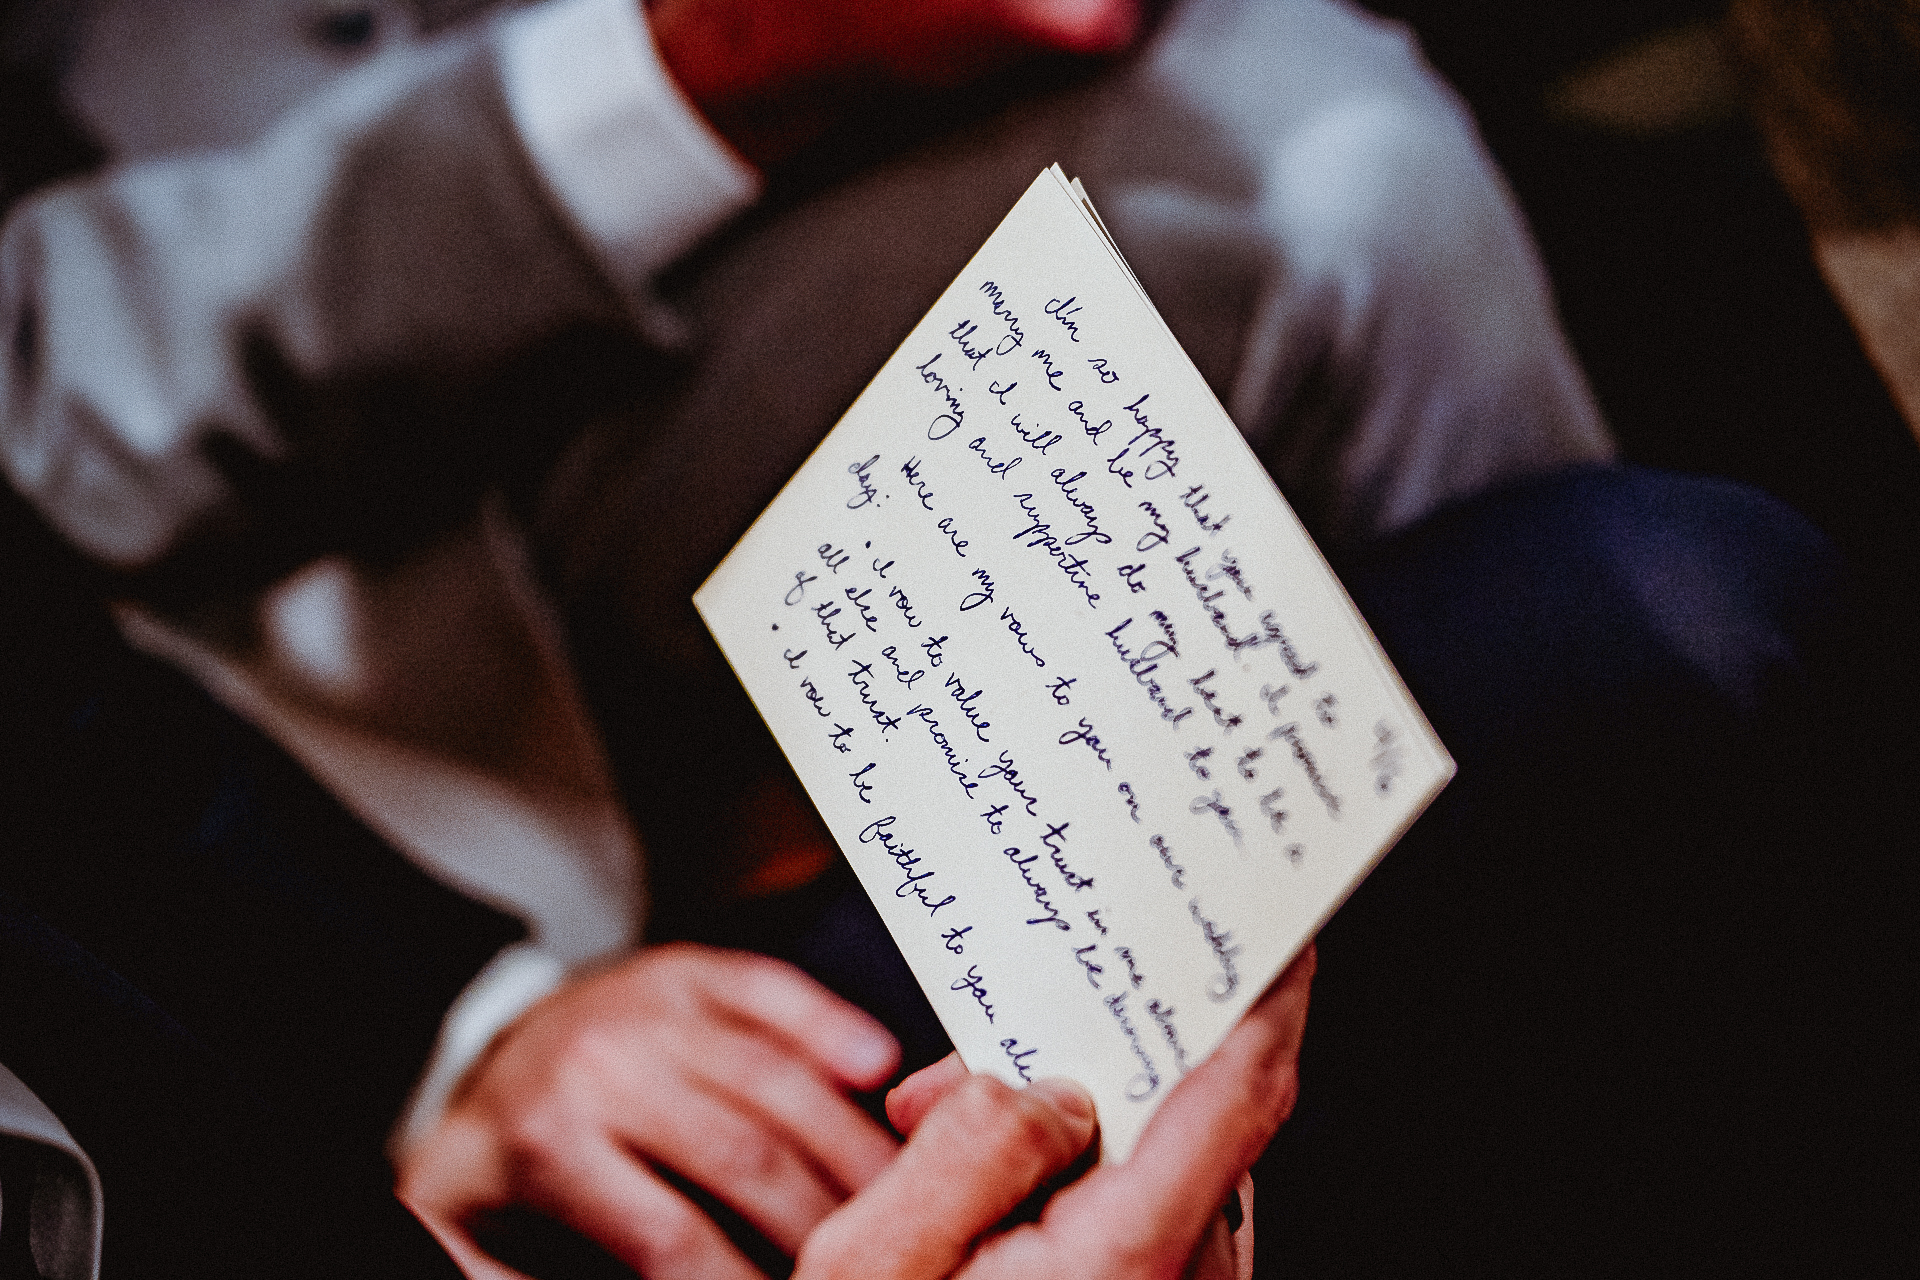 I'm so happy that you agreed to
marry me and be my husband. I promise
that I will always do my best to be a
loving and supportive husband to you
Here are my vows to you on our wedding
day:
• I vow to value your trust in me above
all else and promise to always be deserving
of that trust.
• I vow to be faithful to you